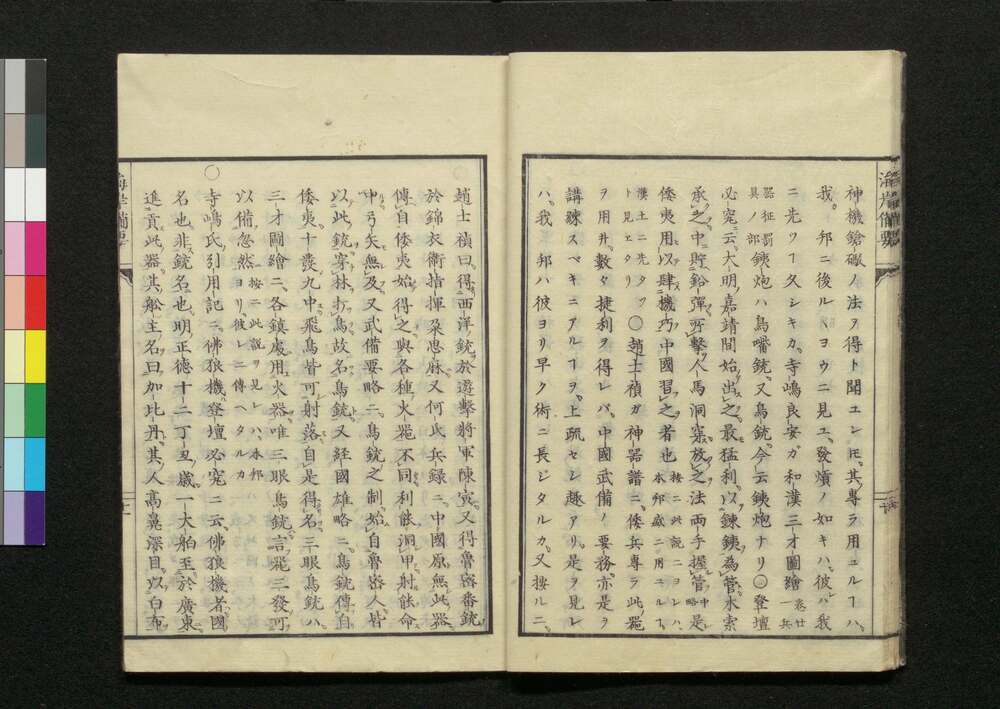 神機鎗礮ノ法ヲ得ト聞ユレ𪜈其專ラ用ユルヿハ
我邦ニ後ルヽヨウニ見ユ發熕ノ如キハ彼レハ我
ニ先ツヿ久シキカ寺嶋良安ガ和漢三才圖繪卷廿一兵
器征罰具ノ部銕炮ハ鳥嘴銃又鳥銃今云銕炮ナリ〇登壇
必究云大明嘉靖間始出之最猛利以錬銕為管木索
承之中貯鉛彈所擊人馬洞穿放之法兩手握管中略是
倭夷用以肆機巧中國習之者也按ニ此説ニヨレハ本邦盛ニ用ユルヿ
漢土ニ先タツト見ヘタリ〇趙士禎ガ神器譜ニ倭兵專ラ此器
ヲ用井數々捷利ヲ得レバ中國武備ノ要務亦是ヲ
講錬スベキニアルヿヲ上疏セシ趣アリ是ヲ見レ
ハ我邦ハ彼ヨリ早ク術ニ長ジタルカ又按ルニ
趙士禎曰得西洋銃於遊擊將軍陳寅又得魯密番銃
於錦衣衛指揮朶思麻又何氏兵録ニ中國原無此器
傳自倭夷始得之與各種火器不同利能洞甲射能命
中弓矢無及又武備要略ニ鳥銃之制始自魯密人皆
以此銃穿林打鳥故名鳥銃又経國雄略ニ鳥銃傳自
倭夷十發九中飛鳥皆可射落自是得名三眼鳥銃ハ
三才圖繪ニ各鎮處用火器唯三眼鳥銃言飛三發可
以備忽然按ニ此説ヲ見レハ本邦ヨリ彼レニ傳ヘタルカ
〇寺嶋氏引用記ニ佛狼機登壇必究ニ云佛狼機者國
名也非銃名也明正徳十二丁丑歳一大舶至於廣東
進貢此器其舩主名曰加比丹其人高鼻深目以白布